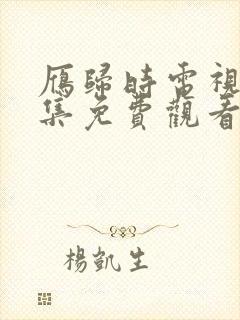 雁歸時電視
集免費觀看
楊凱生